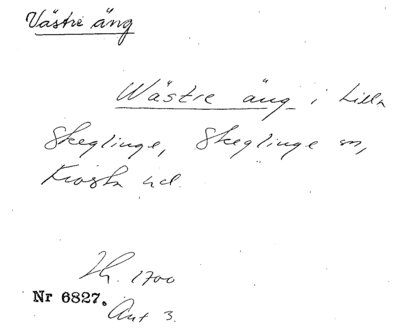 Västre äng
Wästre äng i Lilla
Skeglinge, Skeglinge sn,
Frosta hd.
1700
Nr 6827.
Ant 3.